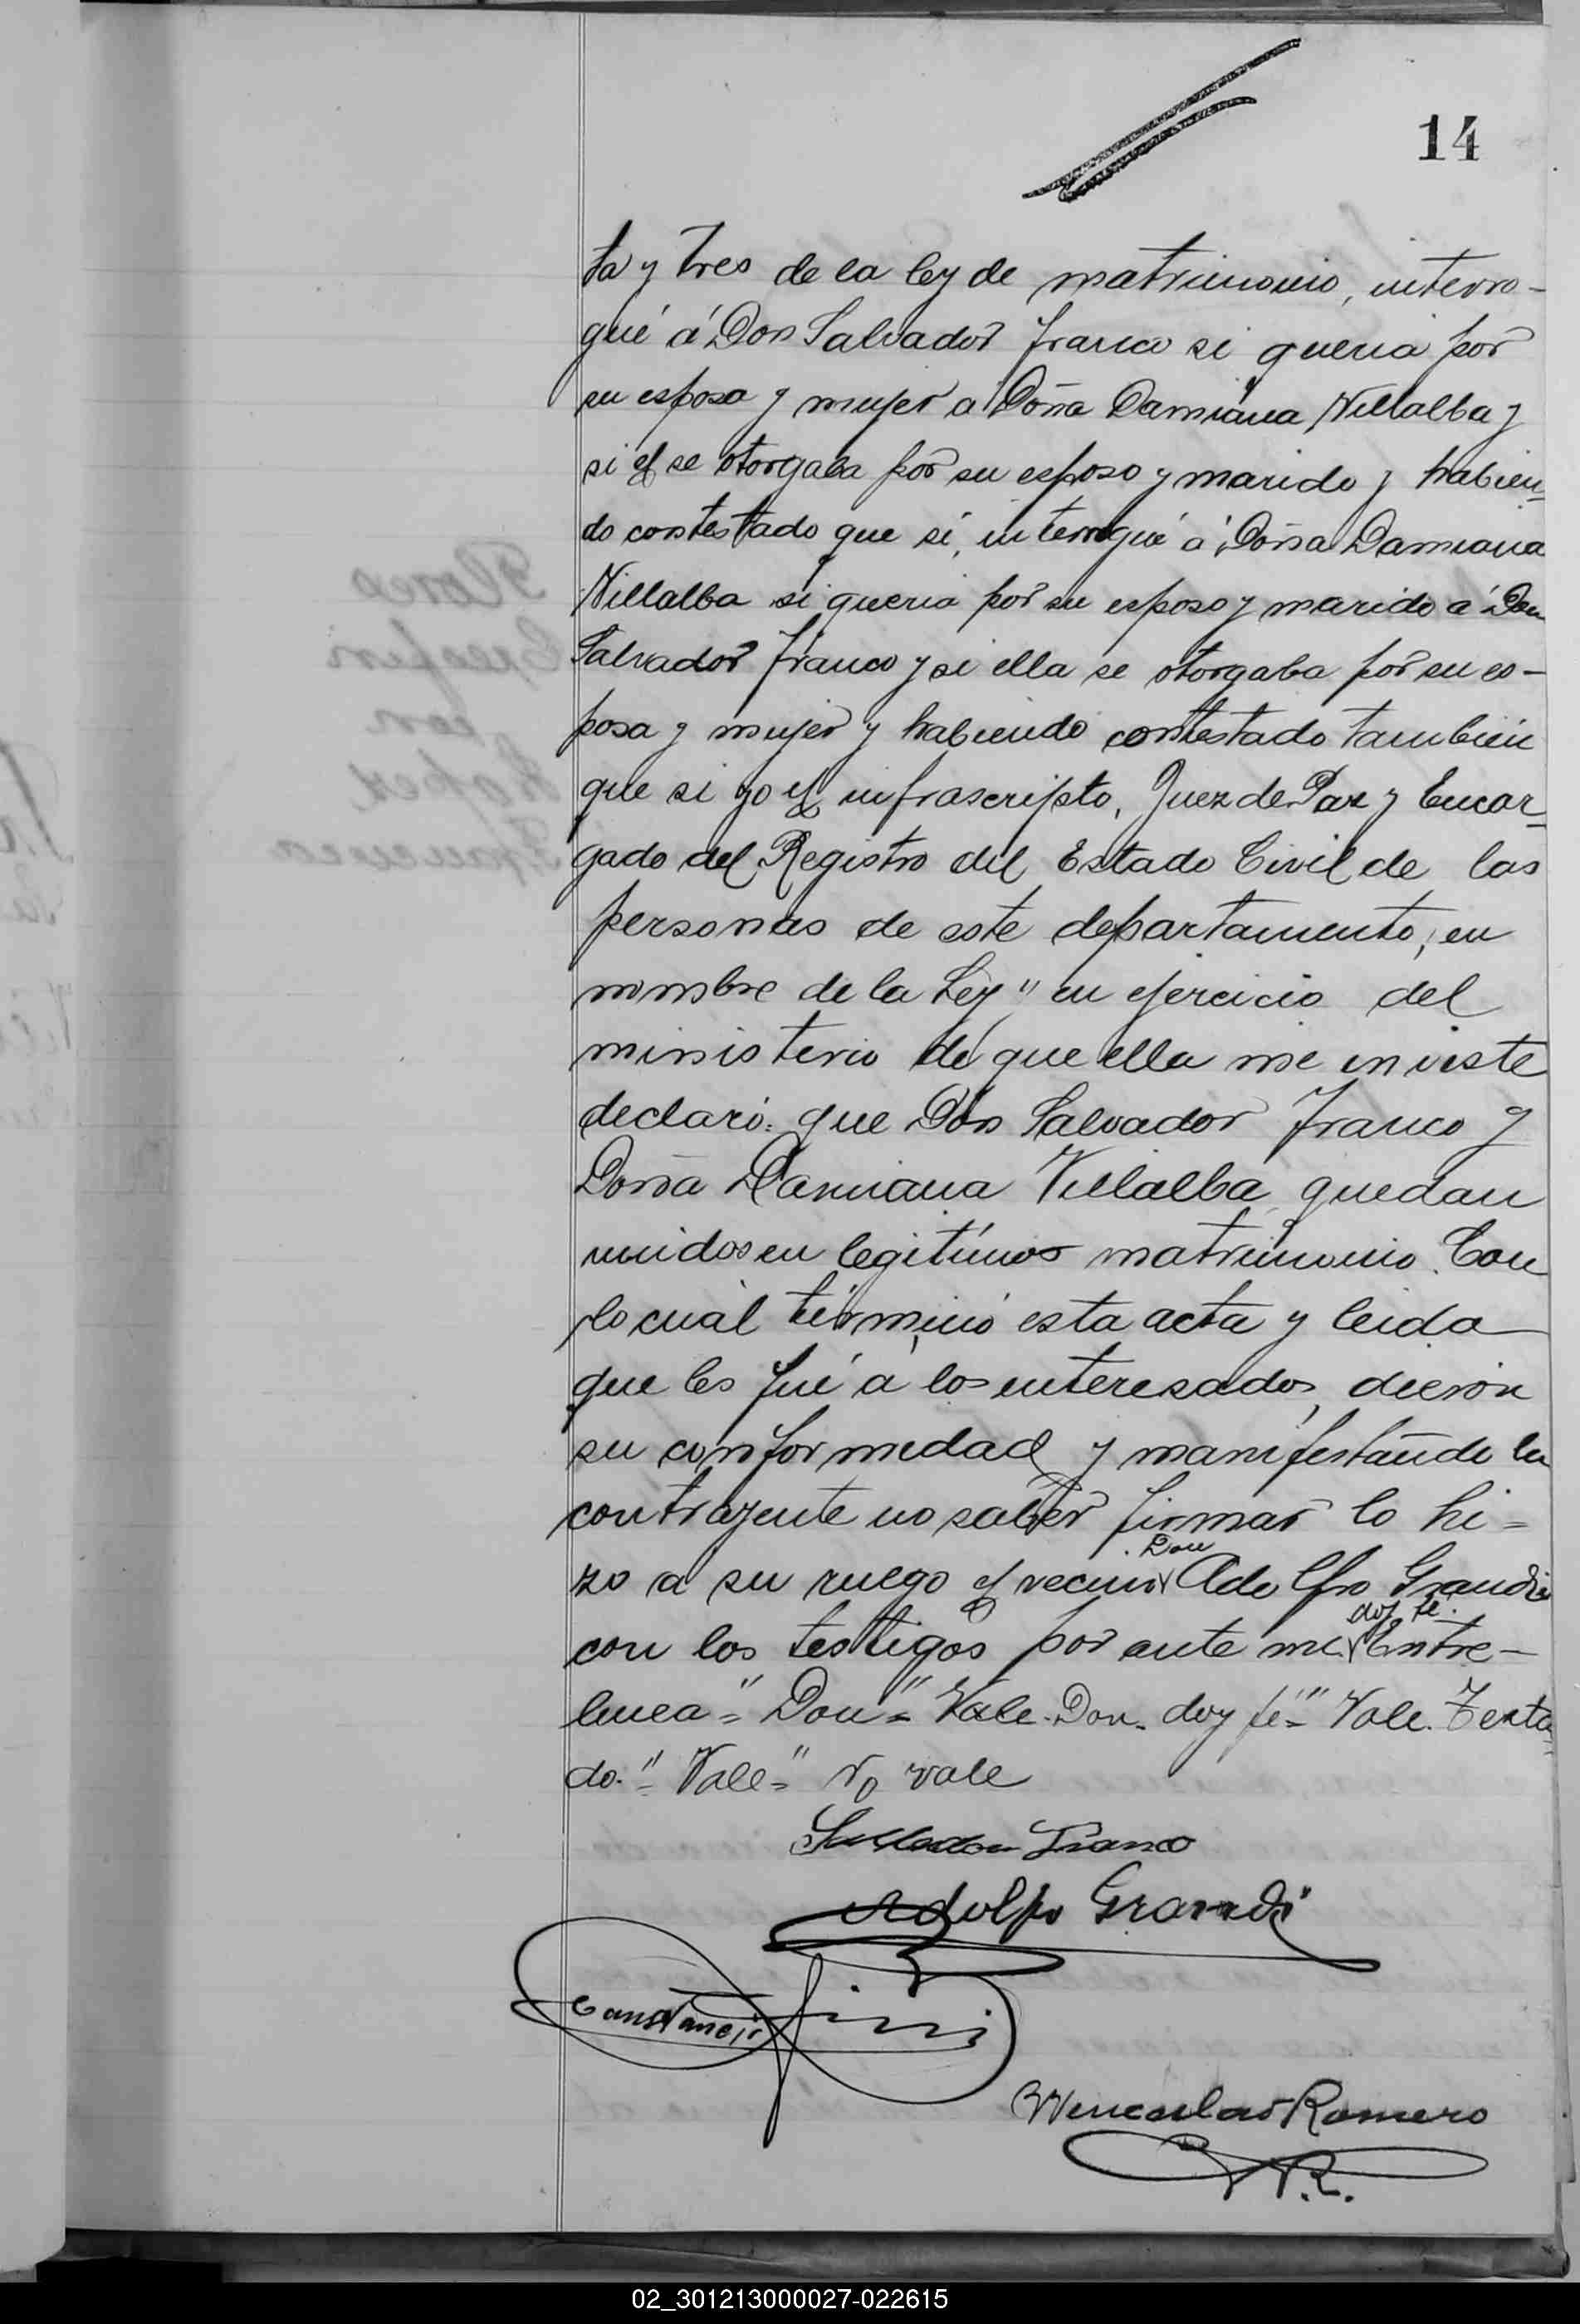 14
ta y tres de la ley de matrimonio, interro-
gué á Don Salvador Franco si queria por
su esposa y mujer á Doña Damiana Villalba y
si el se otorgaba por su esposo y marido y habien-
do contestado que si, interrogué á Doña Damiana
Villalba si queria por su esposo y marido á Don
Salvador Franco y si ella se otorgaba por su es-
posa y mujer y habiendo contestado tambien
que si yo el infrascripto, Juez de Paz y Encar-
gado del Registro del Estado Civil de las
personas de este departamento, en
nombre de la Ley" en ejercicio del
ministerio de que ella me inviste
declaró: que Don Salvador Franco y
Doña Damiana Villalba quedan
unidos en legitimo matrimonio. Con
lo cual términió esta acta y leida
que les fué á los interesados, dieron
su conformidad y manifestando la
contrayente no saber firmar lo hi=
Don
zo a su ruego el vecino Adolfo Grandi
doy fe.
con los testigos por ante mi. Entre-
linea "Don" Vale. Don. doy fé" Vale. Testa-
do. "Vale" No vale
Salvador Franco
Adolfo Grandi
Constancio
Wenceslao Romero
02_301213000027-022615